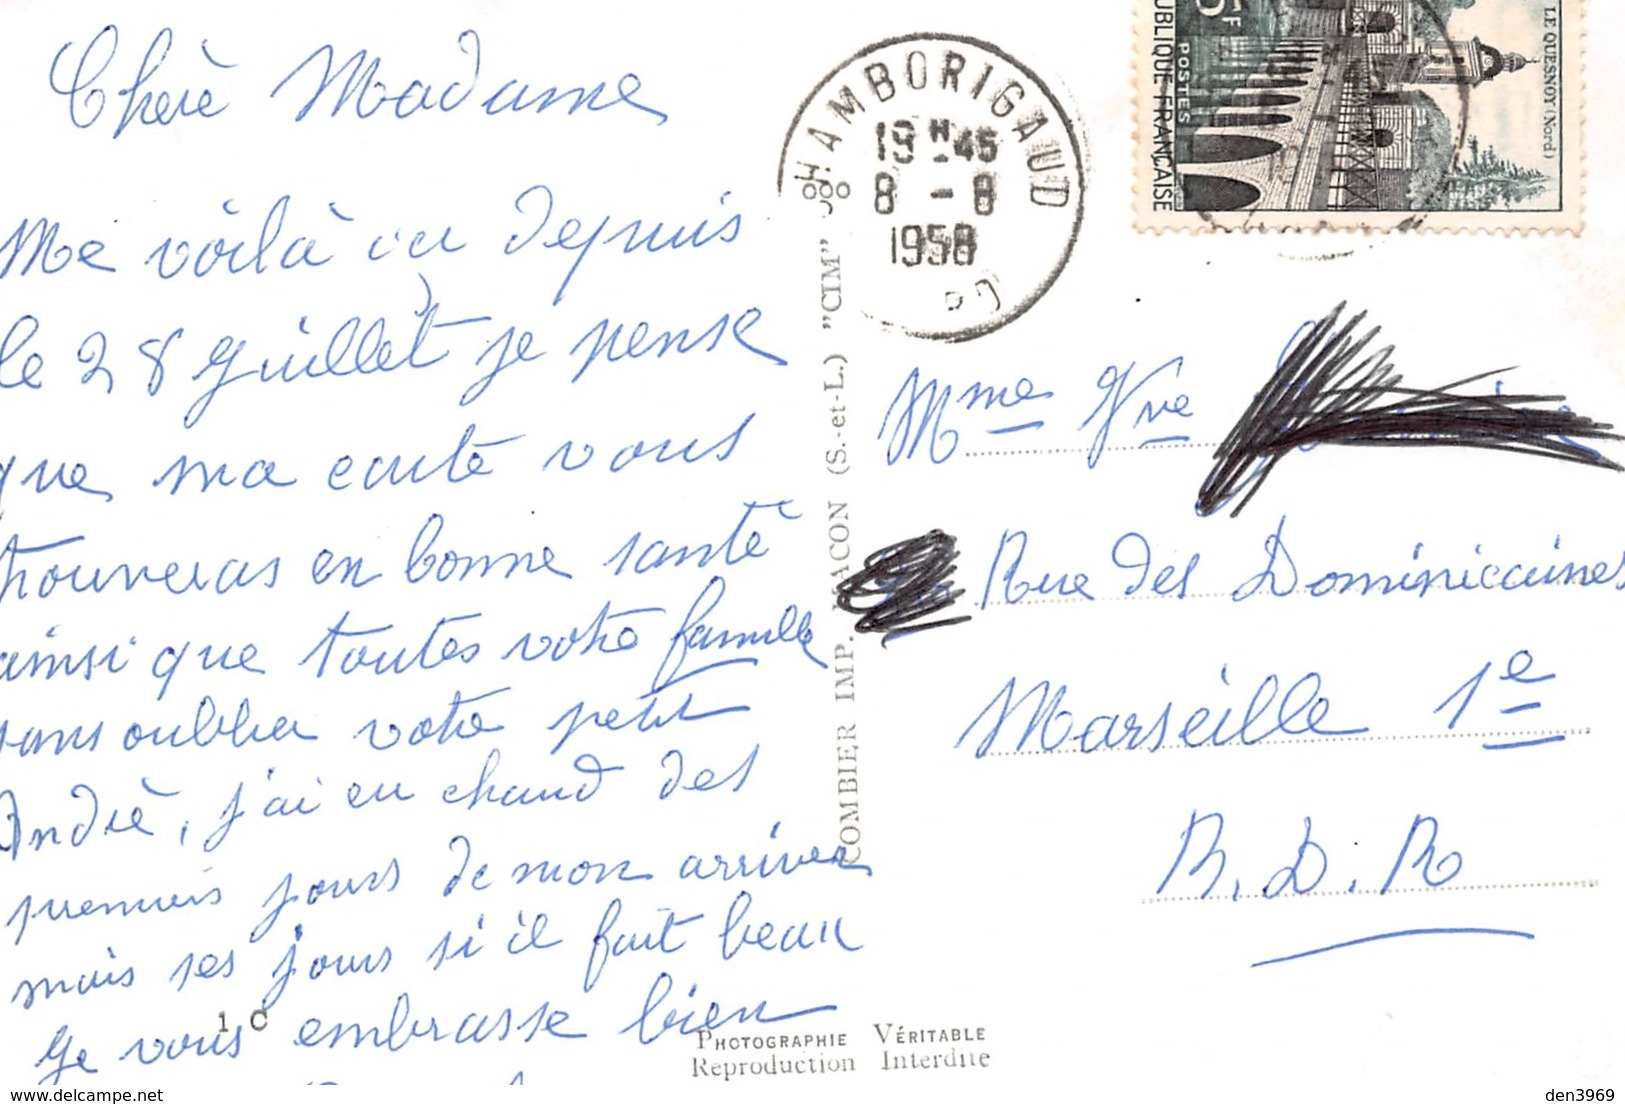 Chère Madame
Me voilà ou depuis
le 28 Juillet je pense
que ma carte vous
trouveras en bonne santé
ainsi que toutes votre famille
sans oublier votre petit
André, j'ai eu chaud des
premiers jours de mon arriver
mais ses jours si il fait beau
Je vous embrasse bien
1 C
CHAMBORIGAUD
19 H 45
8 - 8
1958
5F
POSTES
RÉPUBLIQUE FRANÇAISE
LE QUESNOY (Nord)
COMBIER IMP. MACON (S.-et-L.) "CIM"
Mme Vve
Rue des Dominicaines
Marseille 1e
B. D. R
PHOTOGRAPHIE VÉRITABLE
Reproduction Interdite
den3969